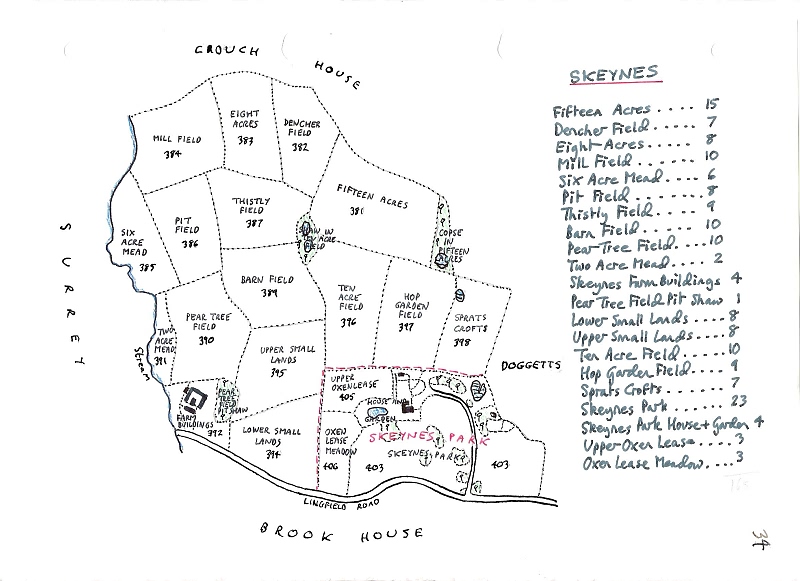 CROUCH HOUSE
SURREY
MILL FIELD
384
EIGHT
ACRES
383
DENCHER
FIELD
382
FIFTEEN ACRES
381
SIX
ACRE
MEAD
385
PIT
FIELD
386
THISTLY
FIELD
387
SHAW IN
TEN ACRE
FIELD
COPSE
IN
FIFTEEN
ACRES
BARN FIELD
389
TEN
ACRE
FIELD
396
HOP
GARDEN
FIELD
397
SPRATS
CROFTS
398
TWO
ACRE
MEAD
391
PEAR TREE
FIELD
390
UPPER SMALL
LANDS
395
DOGGETTS
Stream
UPPER
OXENLEASE
405
HOUSE AND
GARDEN
FARM
BUILDINGS
392
PEAR
TREE
FIELD
PIT SHAW
LOWER SMALL
LANDS
394
OXEN
LEASE
MEADOW
406
SKEYNES PARK
SKEYNES PARK
403
403
LINGFIELD ROAD
BROOK HOUSE
SKEYNES
Fifteen Acres .... 15
Dencher Field ..... 7
Eight Acres ...... 8
Mill Field ...... 10
Six Acre Mead .... 6
Pit Field ....... 8
Thistly Field .... 9
Barn Field ..... 10
Pear Tree Field .... 10
Two Acre Mead .... 2
Skeynes Farm Buildings 4
Pear Tree Field Pit Shaw 1
Lower Small Lands .... 8
Upper Small Lands .... 8
Ten Acre Field .... 10
Hop Garden Field .... 9
Sprats Crofts ..... 7
Skeynes Park ...... 23
Skeynes Park House + Garden 4
Upper Oxen Lease .... 3
Oxen Lease Meadow .... 3
34